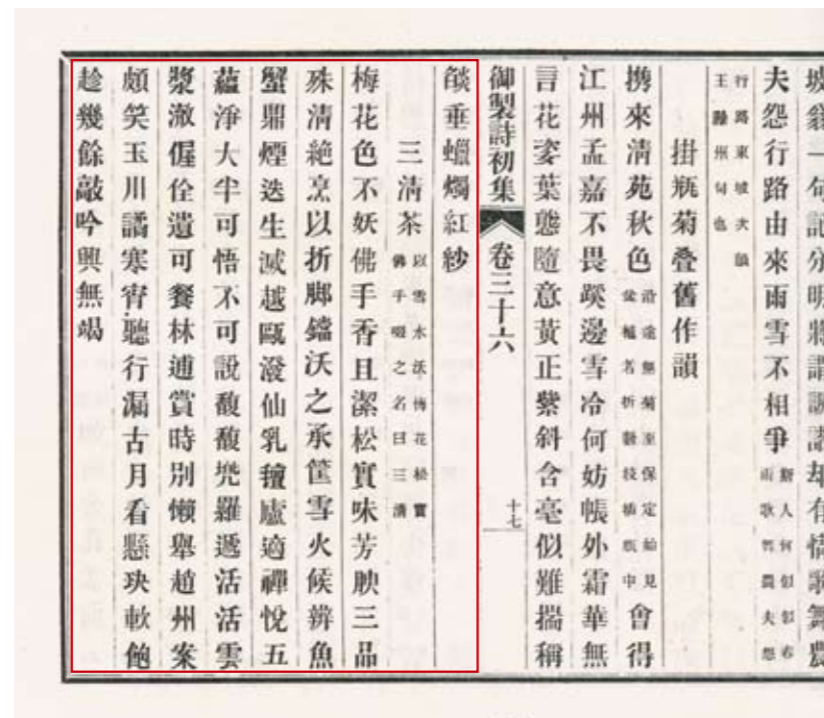 坡翁一句記分明將謂諷諫却有情歌舞農
夫怨行路由來雨雪不相爭 斯人何似似春雨歌舞農夫怨
行路東坡次韻王滁州句也
掛瓶菊疊舊作韻
携來清苑秋色 沿途無菊至保定始見盆植者折數枝插瓶中 會得
江州孟嘉不畏蹊邊雪冷何妨帳外霜華無
言花葉態隨意黃正紫斜含毫似難揣稱
御製詩初集 卷三十六 十七
燄垂蠟燭紅紗
三清茶 以雪水沃梅花松實佛手啜之名曰三清
梅花色不妖佛手香且潔松實味芳腴三品
殊清絶烹以折脚鐺沃之承筐雪火候辨魚
蟹鼎煙迭生滅越甌潑仙乳氊廬適禪悅五
蘊淨大半可悟不可說馥馥兜羅遞活活雲
漿澈偓佺遺可餐林逋賞時別懶舉趙州案
頗笑玉川譎寒宵聽行漏古月看懸玦軟飽
趁幾餘敲吟興無竭